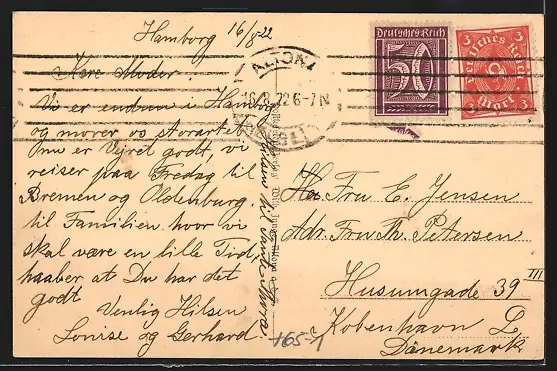 Hamborg 16/8 22
Kære Moder!
Vi er endnu i Hamborg
og morer os storartet
nu er Vejret godt, vi
rejser paa Fredag til
Bremen og Oldenburg
til Familien hvor vi
skal være en lille Tid,
haaber at Du har det
godt
Venlig Hilsen
Louise og Gerhard.
Hilsen til tante Thora.
ALTONA
16.8.22 6-7 N
Deutsches Reich
50
3 3
Deutsches Reich
3 3
Mark
Fru E. Jensen
Adr. Fru Th. Petersen
Husumgade 39 III
København L
Dänemark
+65-1